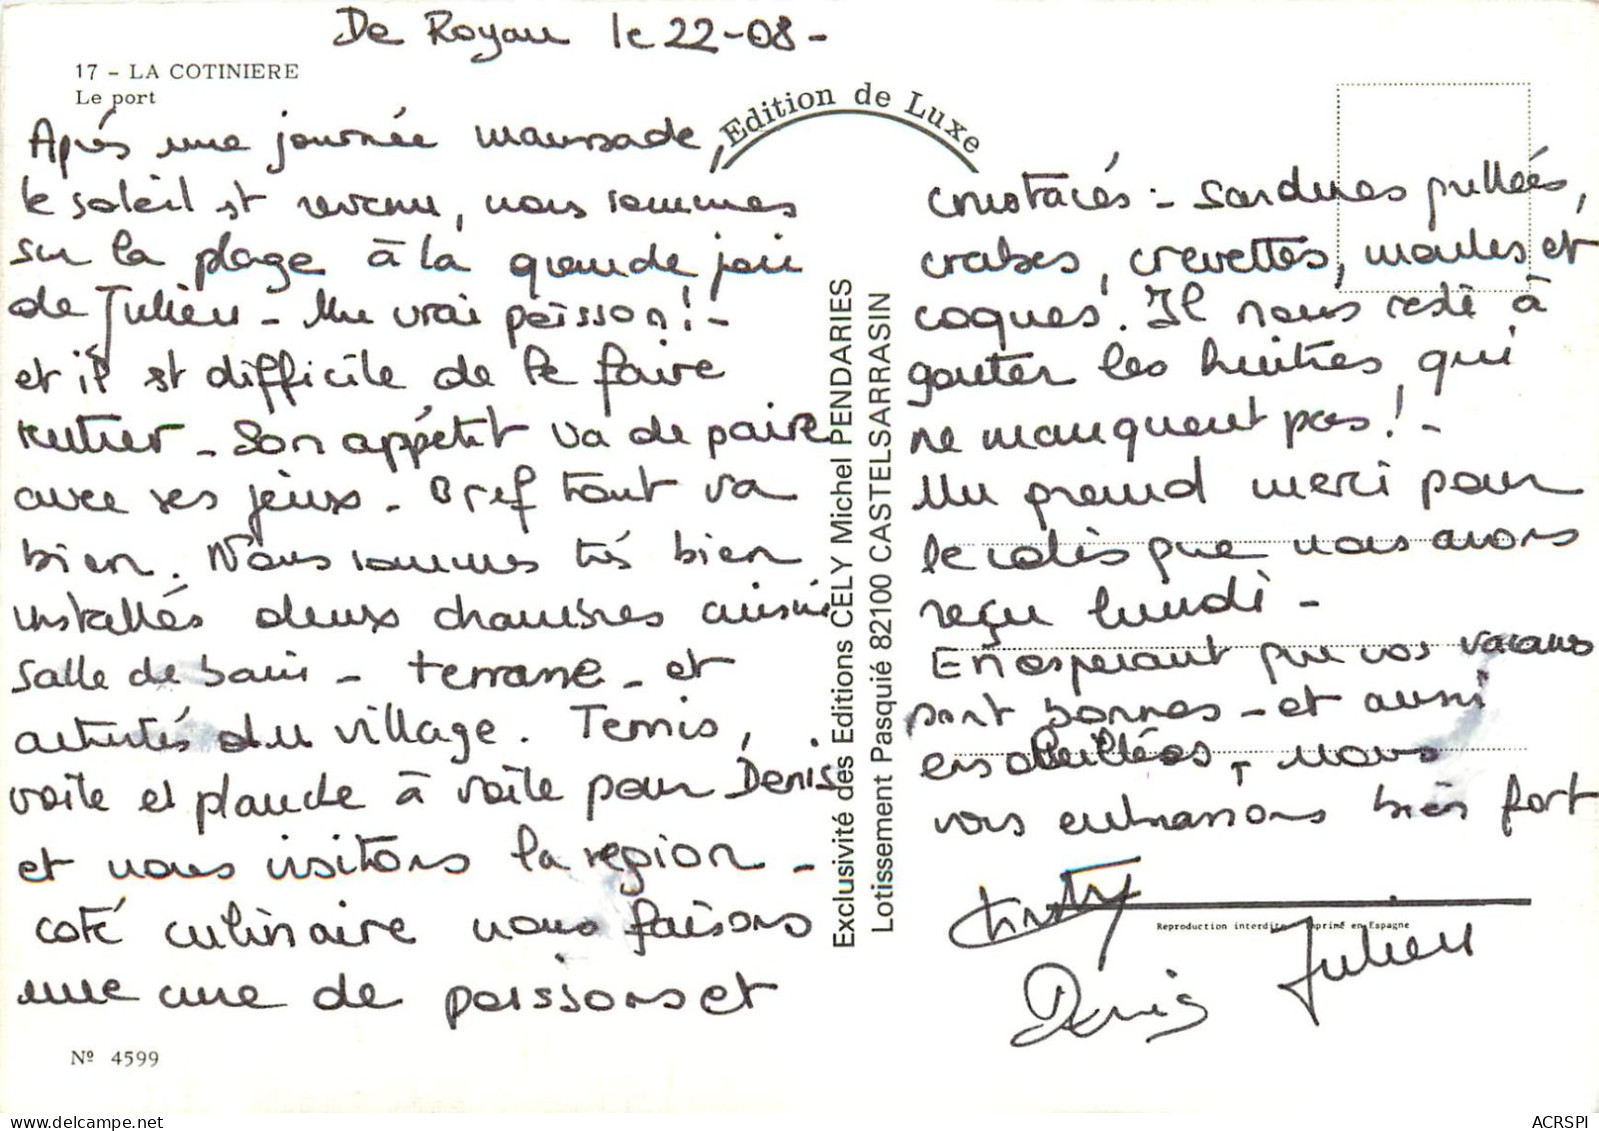 De Royan le 22-08-
17 - LA COTINIERE
Le port
Edition de Luxe
Après une journée maussade,
le soleil st revenu, nous sommes
sur la plage à la grande joie
de Julien - Un vrai poisson! -
et il st difficile de le faire
rentrer - Son appétit va de paire
avec ses jeux - Bref tout va
bien. Nous sommes très bien
installés deux chambres cuisine
salle de bain - terrasse - et
activités du village. Tennis,
voile et planche à voile pour Denis
et nous visitons la région -
coté culinaire nous faisons
une cure de poissons et
Nº 4599
Exclusivité des Editions CELY Michel PENDARIES
Lotissement Pasquié 82100 CASTELSARRASIN
crustacés - sardines grillées,
crabes, crevettes, moules et
coques. Il nous reste à
gouter les huitres, qui
ne manquent pas! -
Un grand merci pour
le colis que nous avons
reçu lundi -
En esperant que vos vacances
sont bonnes - et aussi
ensoleillées, nous
vous embrassons bien fort
Reproduction interdite Imprimé en Espagne
Julien
Denis
ACRSPI